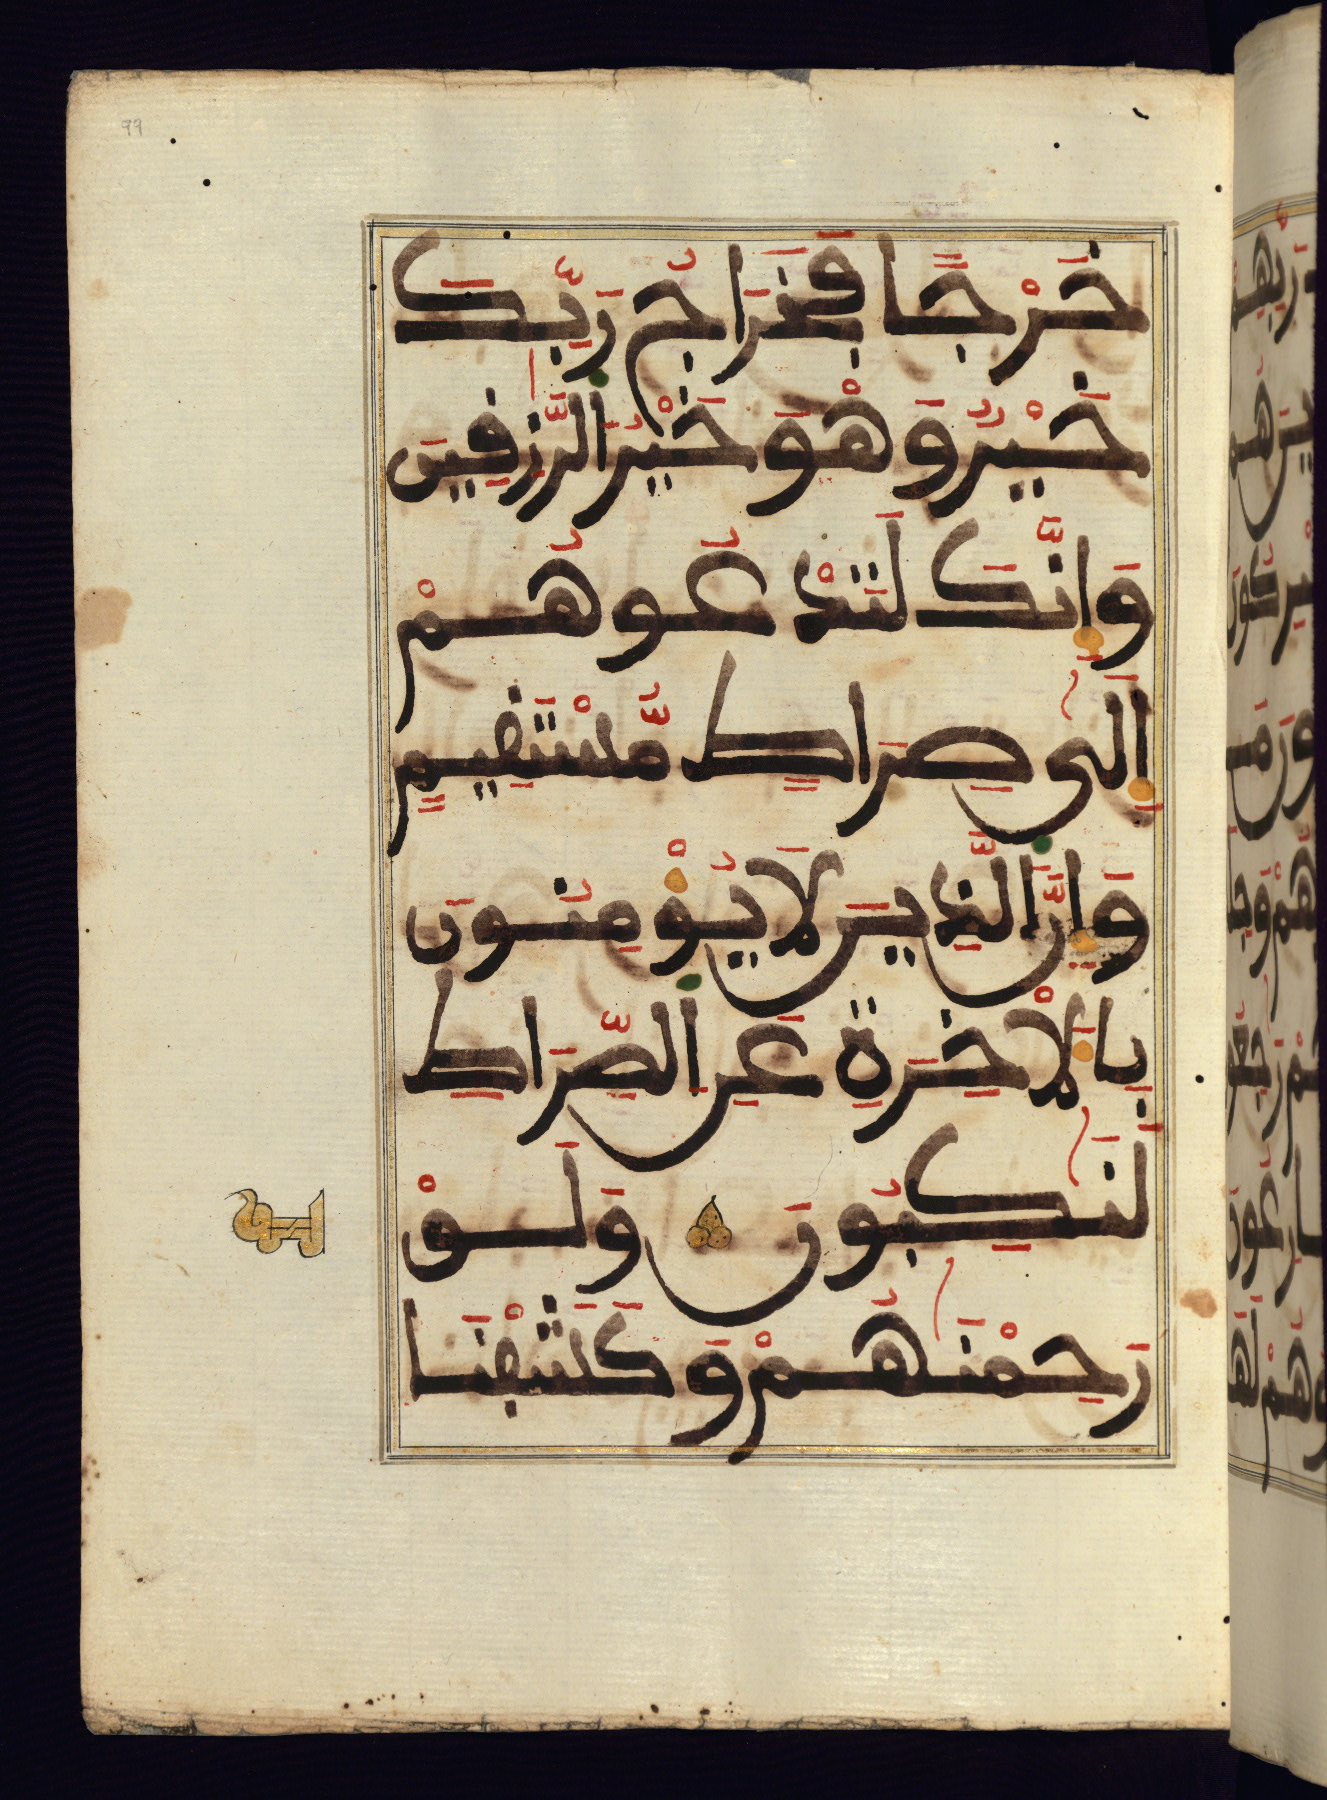 99
خَرْجًا فَخَرَاجُ رَبِّكَ
خَيْرٌ وَهْوَ خَيْرُ الرَّٰزِقِينَ
وَإِنَّكَ لَتَدْعُوهُمْ
إِلَىٰ صِرَاطٍ مُّسْتَقِيمٍ
وَإِنَّ الَّذِينَ لَا يُؤْمِنُونَ
بِالْأَخِرَةِ عَنِ الصِّرَاطِ
لَنَٰكِبُونَ وَلَوْ
رَحِمْنَٰهُمْ وَكَشَفْنَا